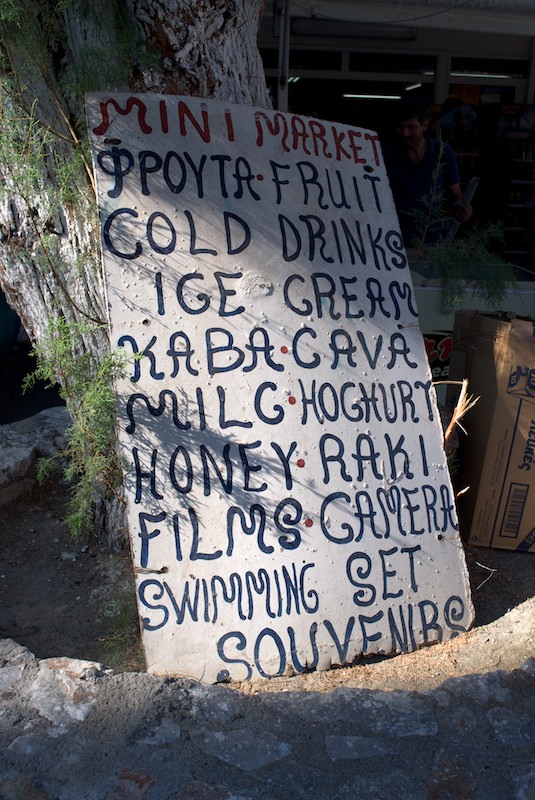 MINI MARKET
ΦΡΟΥΤΑ·FRUIT
COLD DRINKS
ICE CREAM
KABA·CAVA
MILC·HOGHURT
HONEY·RAKI
FILMS·CAMERA
SWIMMING SET
SOUVENIRS